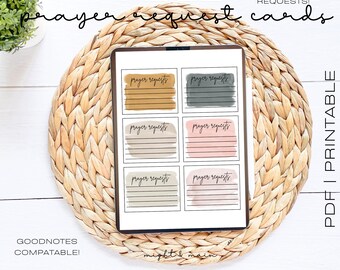 REQUESTS!
prayer request cards
prayer requests
prayer requests
prayer requests
prayer requests
prayer requests
prayer requests
PDF | PRINTABLE
GOODNOTES
COMPATABLE!
might & main